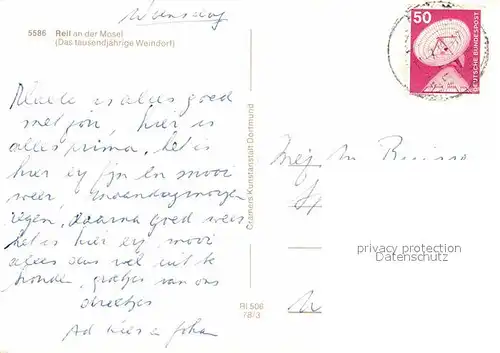 Woensdag
5586 Reil an der Mosel
(Das tausendjährige Weindorf)
50
DEUTSCHE BUNDESPOST
is alles goed
met jou, hier is
alles prima. het is
hier erg fijn en mooi
weer, maandagmorgen
regen, daarna goed weer
het is hier erg mooi
alles dus wel uit te
houden, groetjes van ons
Ad Kees
Cramers Kunstanstalt Dortmund
RI 506
78/3
privacy protection
Datenschutz